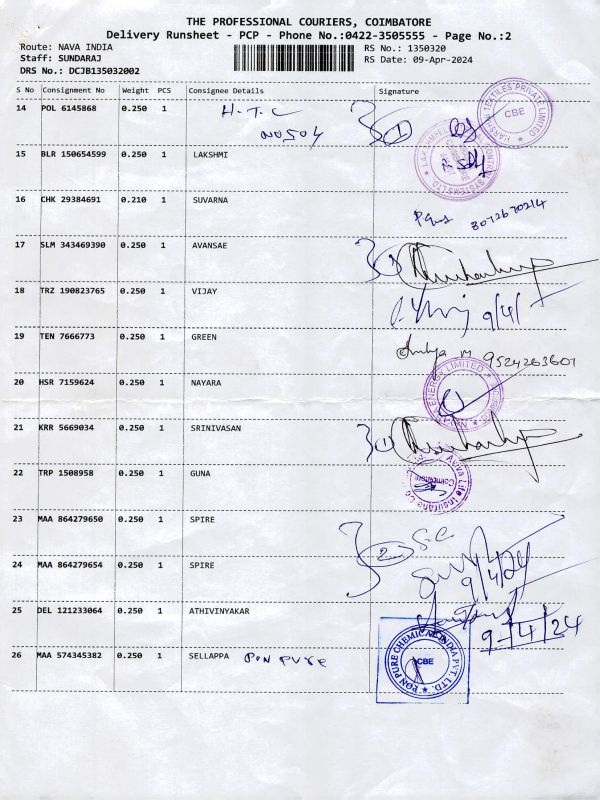 THE PROFESSIONAL COURIERS, COIMBATORE
Delivery Runsheet - PCP - Phone No.:0422-3505555 - Page No.:2
Route: NAVA INDIA RS No.: 1350320
Staff: SUNDARAJ RS Date: 09-Apr-2024
DRS No.: DCJB135032002
S No Consignment No Weight PCS Consignee Details Signature
14 POL 6145868 0.250 1 H.T.C
NO504
1
TEXTILES PRIVATE LIMITED
CBE
15 BLR 150654599 0.250 1 LAKSHMI
SYSTEMS LTD.
16 CHK 29384691 0.210 1 SUVARNA
17 SLM 343469390 0.250 1 AVANSAE
18 TRZ 190823765 0.250 1 VIJAY
9/4/
19 TEN 7666773 0.250 1 GREEN
9524263601
20 HSR 7159624 0.250 1 NAYARA
ENERGY LIMITED
21 KRR 5669034 0.250 1 SRINIVASAN
1
22 TRP 1508958 0.250 1 GUNA
Life Insurance Co
Coimbatore
23 MAA 864279650 0.250 1 SPIRE
2
24 MAA 864279654 0.250 1 SPIRE
9/4/24
25 DEL 121233064 0.250 1 ATHIVINYAKAR
9/4/24
26 MAA 574345382 0.250 1 SELLAPPA PON PURE
PON PURE CHEMICAL INDIA PVT. LTD.
CBE